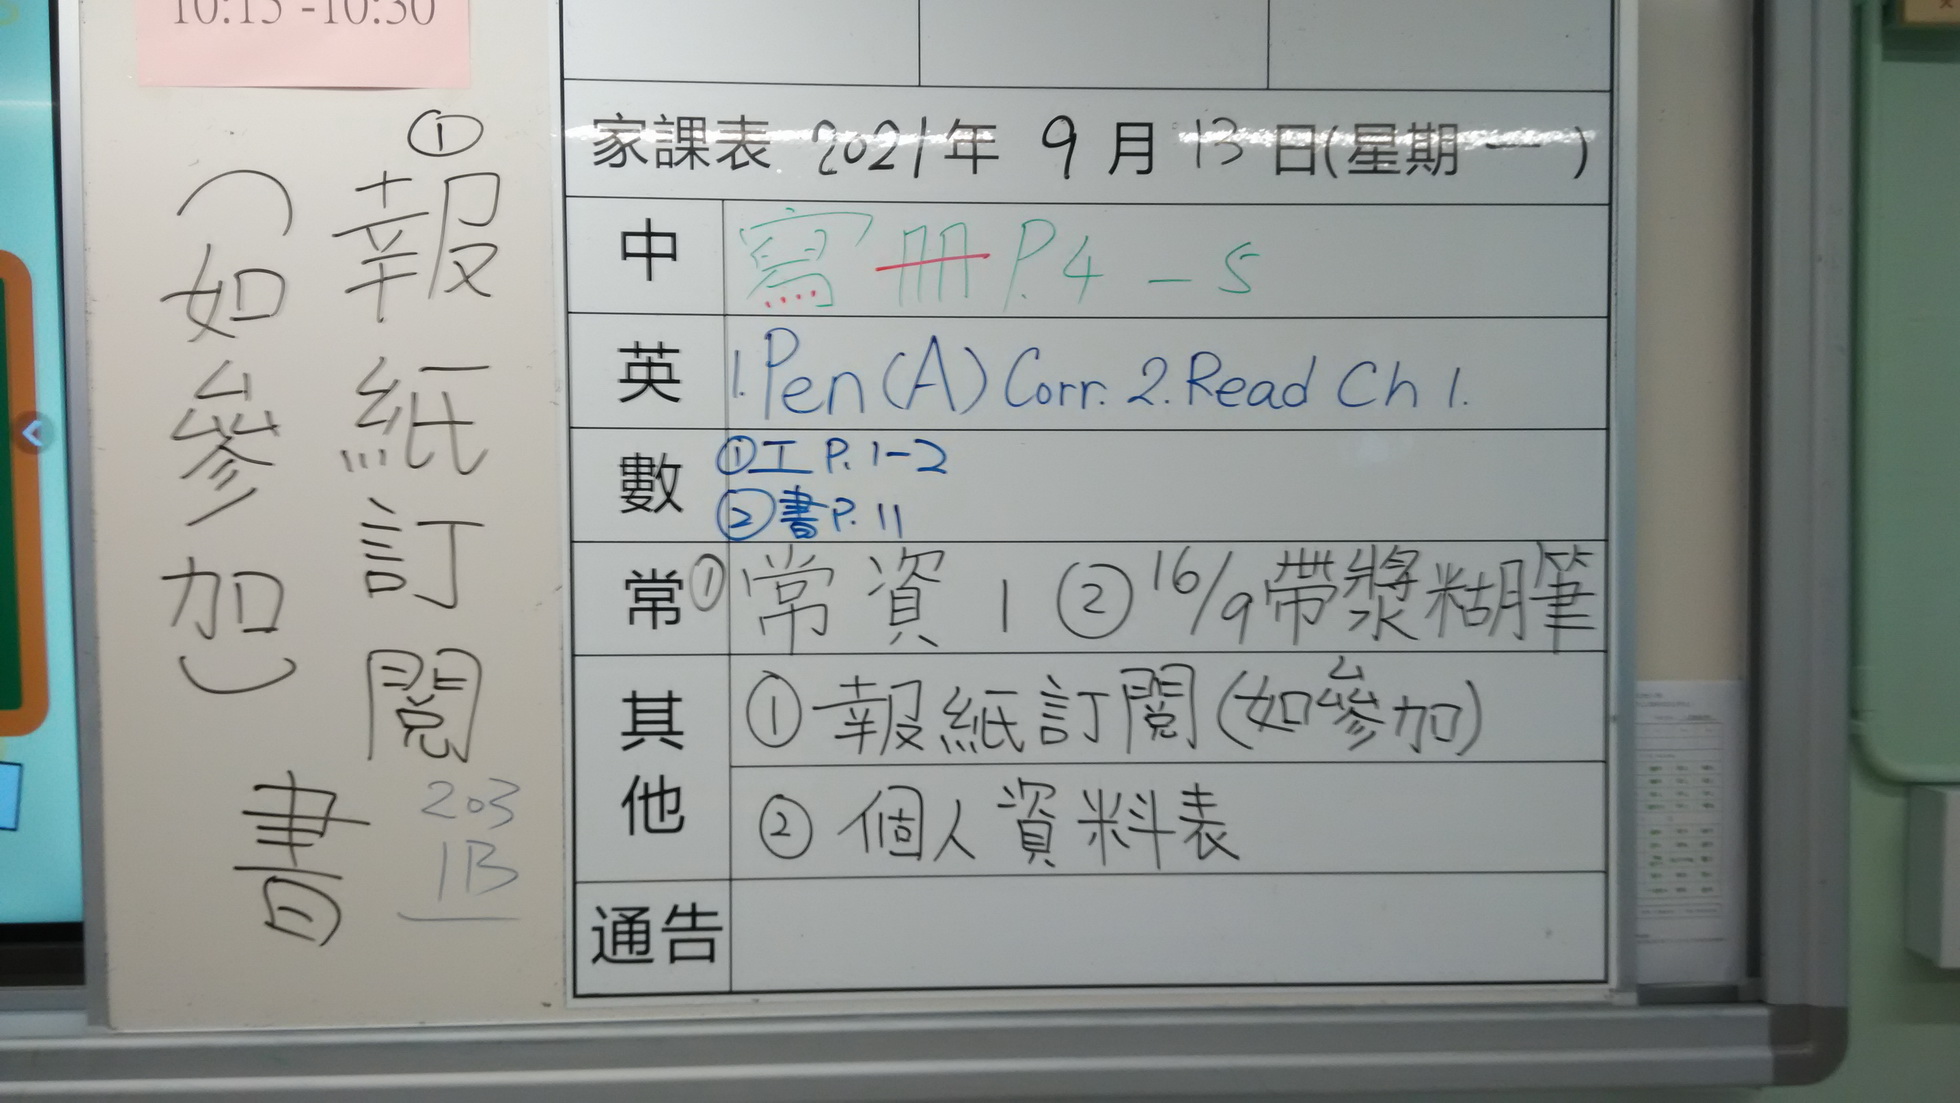 10:15 -10:30
①
報紙訂閱
（如參加）
書
203
1B
家課表 2021年 9月 13日(星期一)
中 寫冊P.4 - 5
英 1.Pen(A) Corr. 2.Read Ch 1.
數 ①工 P.1-2
②書P.11
常 ①常資1 ②16/9帶漿糊筆
其他 ①報紙訂閱(如參加)
②個人資料表
通告